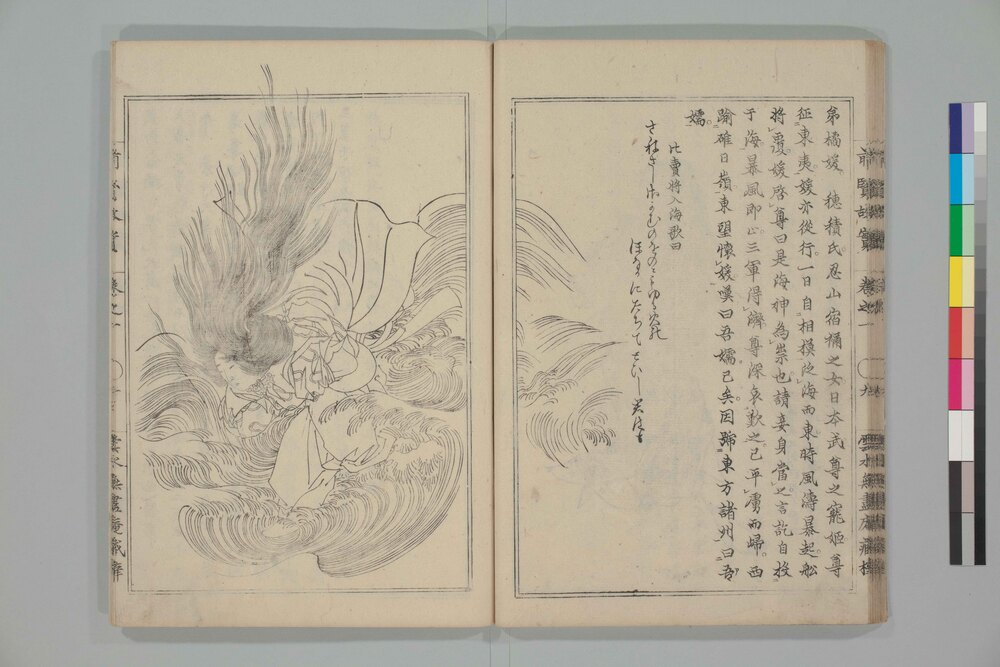 弟橘媛穂積氏忍山宿禰之女日本武尊之寵姫尊
征東夷媛亦從行一日自相模泛海而東時風濤暴起舩
将覆媛啓尊曰是海神為祟也請妾身當之言訖自投
于海暴風即止三軍得濟尊深哀歎之已平虜而歸西
踰碓日嶺東望懐媛嘆曰吾嬬已矣因号東方諸州曰吾
嬬
比賣将入海歌曰
さねさしさがむのをのにもゆる火の
ほなかにたちてとひしきみはも
前賢故實
巻之一